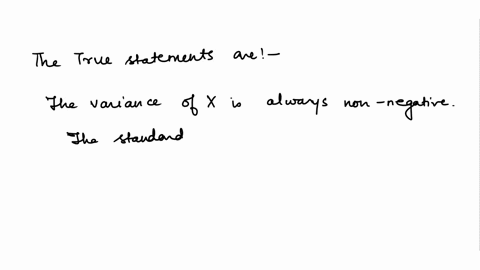 The True statements are!-
The variance of X is always non-negative.
The standard